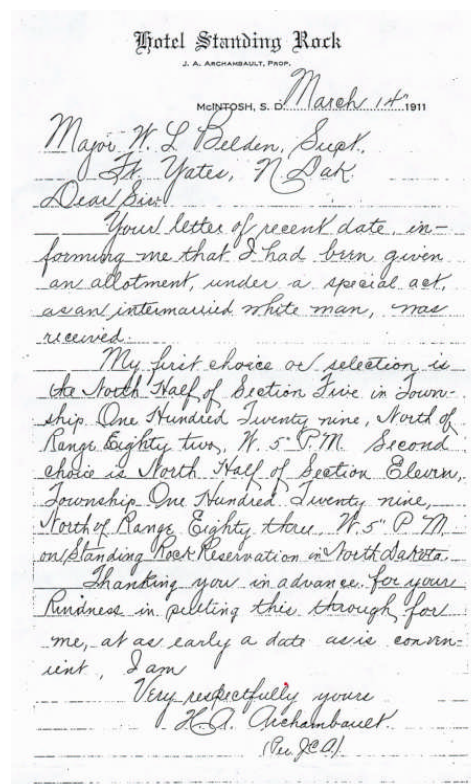 Hotel Standing Rock
J. A. ARCHAMBAULT, PROP.
McINTOSH, S. D. March 14" 1911
Major W. L Belden, Supt.
Ft. Yates, N Dak
Dear Sir:
Your letter of recent date, in-
forming me that I had been given
an allotment, under a special act,
as an intermarried white man, was
received.
My first choice or selection is
the North Half of Section Five in Town-
ship One Hundred Twenty nine, North of
Range Eighty two, W. 5" P.M. Second
choice is North Half of Section Eleven,
Township One Hundred Twenty nine,
North of Range Eighty three, W. 5" P M
on Standing Rock Reservation in North Dakota.
Thanking you in advance for your
kindness in putting this through for
me, at as early a date as is conven-
ient, I am
Very respectfully yours
H. A. Archambault.
(Per J.C.A.)